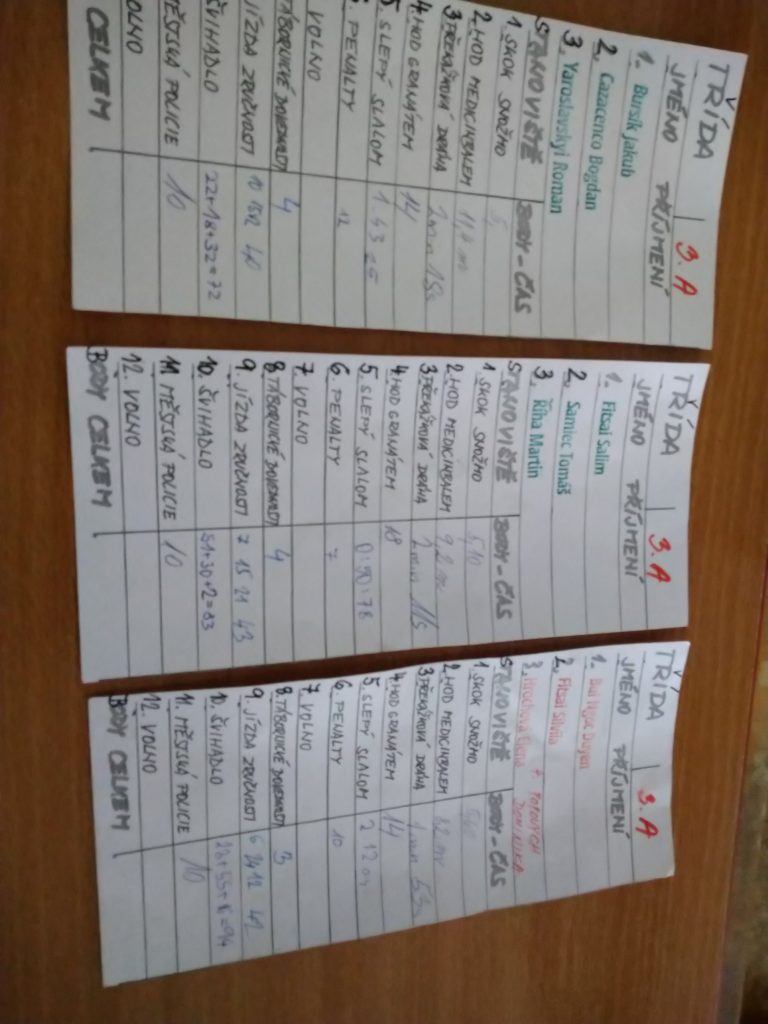 TŘÍDA 3. A
JMÉNO PŘÍJMENÍ
1. Bursík Jakub
2. Cazacenco Bogdan
3. Yaroslavskyi Roman
STANOVIŠTĚ BODY - ČAS
1 SKOK SNOŽMO
2. HOD MEDICINBALEM
3 PŘEKÁŽKOVÁ DRÁHA 2min 15s
4. HOD GRANÁTEM 14
5. SLEPÝ SLALOM 1.43 25
6. PENALTY 12
VOLNO
TÁBORNICKÉ DOVEDNOSTI 4
JÍZDA ZRUČNOSTI
ŠVIHADLO 22+18+32=72
MĚSTSKÁ POLICIE 10
VOLNO
CELKEM
TŘÍDA 3. A
JMÉNO PŘÍJMENÍ
1. Fitsai Salim
2. Samiec Tomáš
3. Říha Martin
STANOVIŠTĚ BODY - ČAS
1 SKOK SNOŽMO 5,10
2. HOD MEDICINBALEM 9,2 m
3 PŘEKÁŽKOVÁ DRÁHA 2min 11s
4 HOD GRANÁTEM 18
5. SLEPÝ SLALOM 0:50:78
6. PENALTY 7
7. VOLNO
8. TÁBORNICKÉ DOVEDNOSTI 4
9. JÍZDA ZRUČNOSTI 7 15 21 43
10. ŠVIHADLO 51+30+2=83
11. MĚSTSKÁ POLICIE 10
12. VOLNO
BODY CELKEM
TŘÍDA 3. A
JMÉNO PŘÍJMENÍ
1. Bui Ngoc Duyen
2. Fitsai Silviia
3. Hrochová Elena
STANOVIŠTĚ BODY - ČAS
1 SKOK SNOŽMO
2. HOD MEDICINBALEM
3 PŘEKÁŽKOVÁ DRÁHA 1min 53s
4 HOD GRANÁTEM 14
5 SLEPÝ SLALOM 2 12 04
6. PENALTY 10
7. VOLNO
8. TÁBORNICKÉ DOVEDNOSTI 3
9. JÍZDA ZRUČNOSTI
10. ŠVIHADLO
11. MĚSTSKÁ POLICIE 10
12. VOLNO
BODY CELKEM